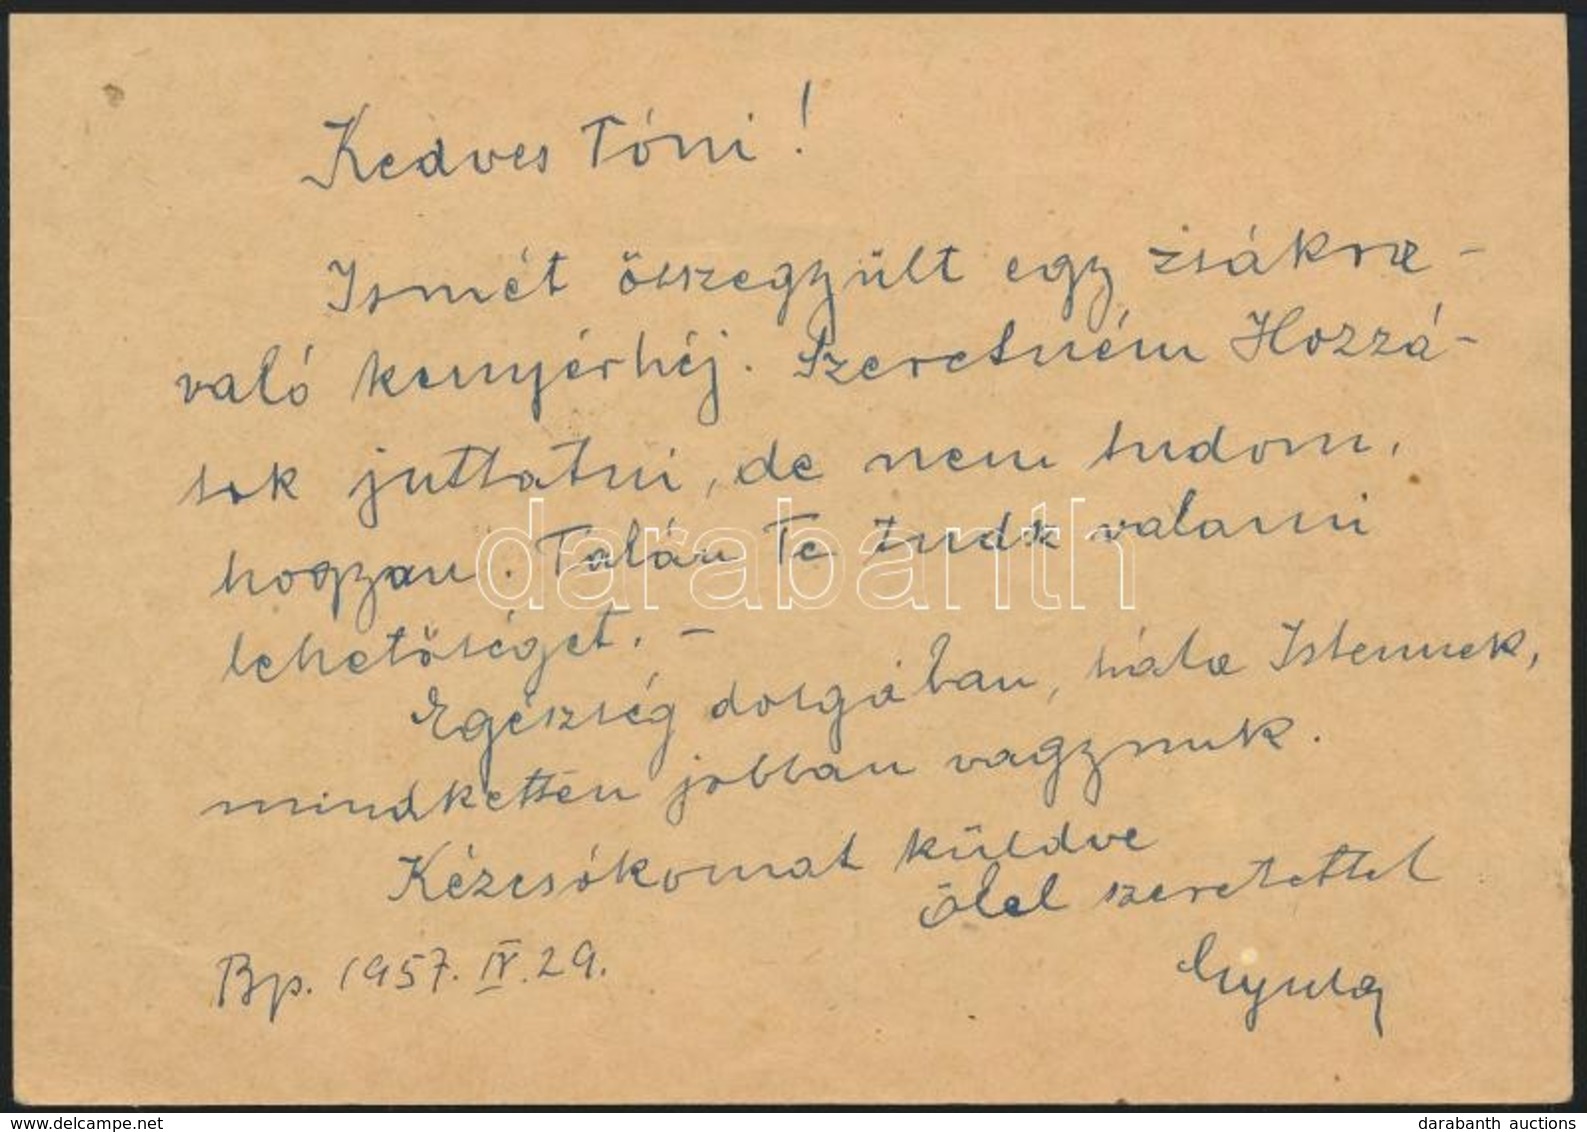 Kedves Tóni!
Ismét összegyűlt egy zsákra-
való kenyérhéj. Szeretném Hozzá-
tok juttatni, de nem tudom,
hogyan. Talán Te tudsz valami
lehetőséget. -
Egészség dolgában, hála Istennek,
mindketten jobban vagyunk.
Kézcsókomat küldve
ölel szeretettel
Gyula
Bp. 1957. IV. 29.
darabanth
www.delcampe.net
darabanth auctions